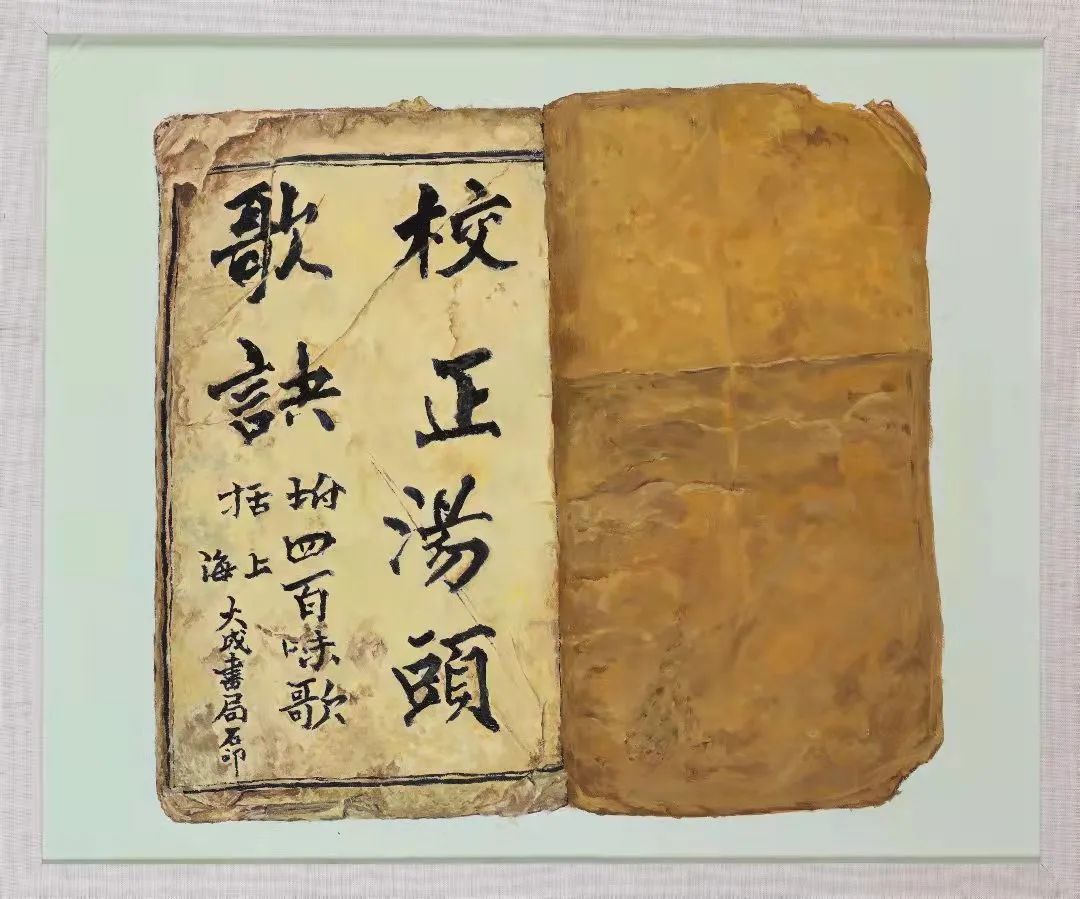 校正湯頭
歌訣
坿四百味歌
括
上海
大成書局石印